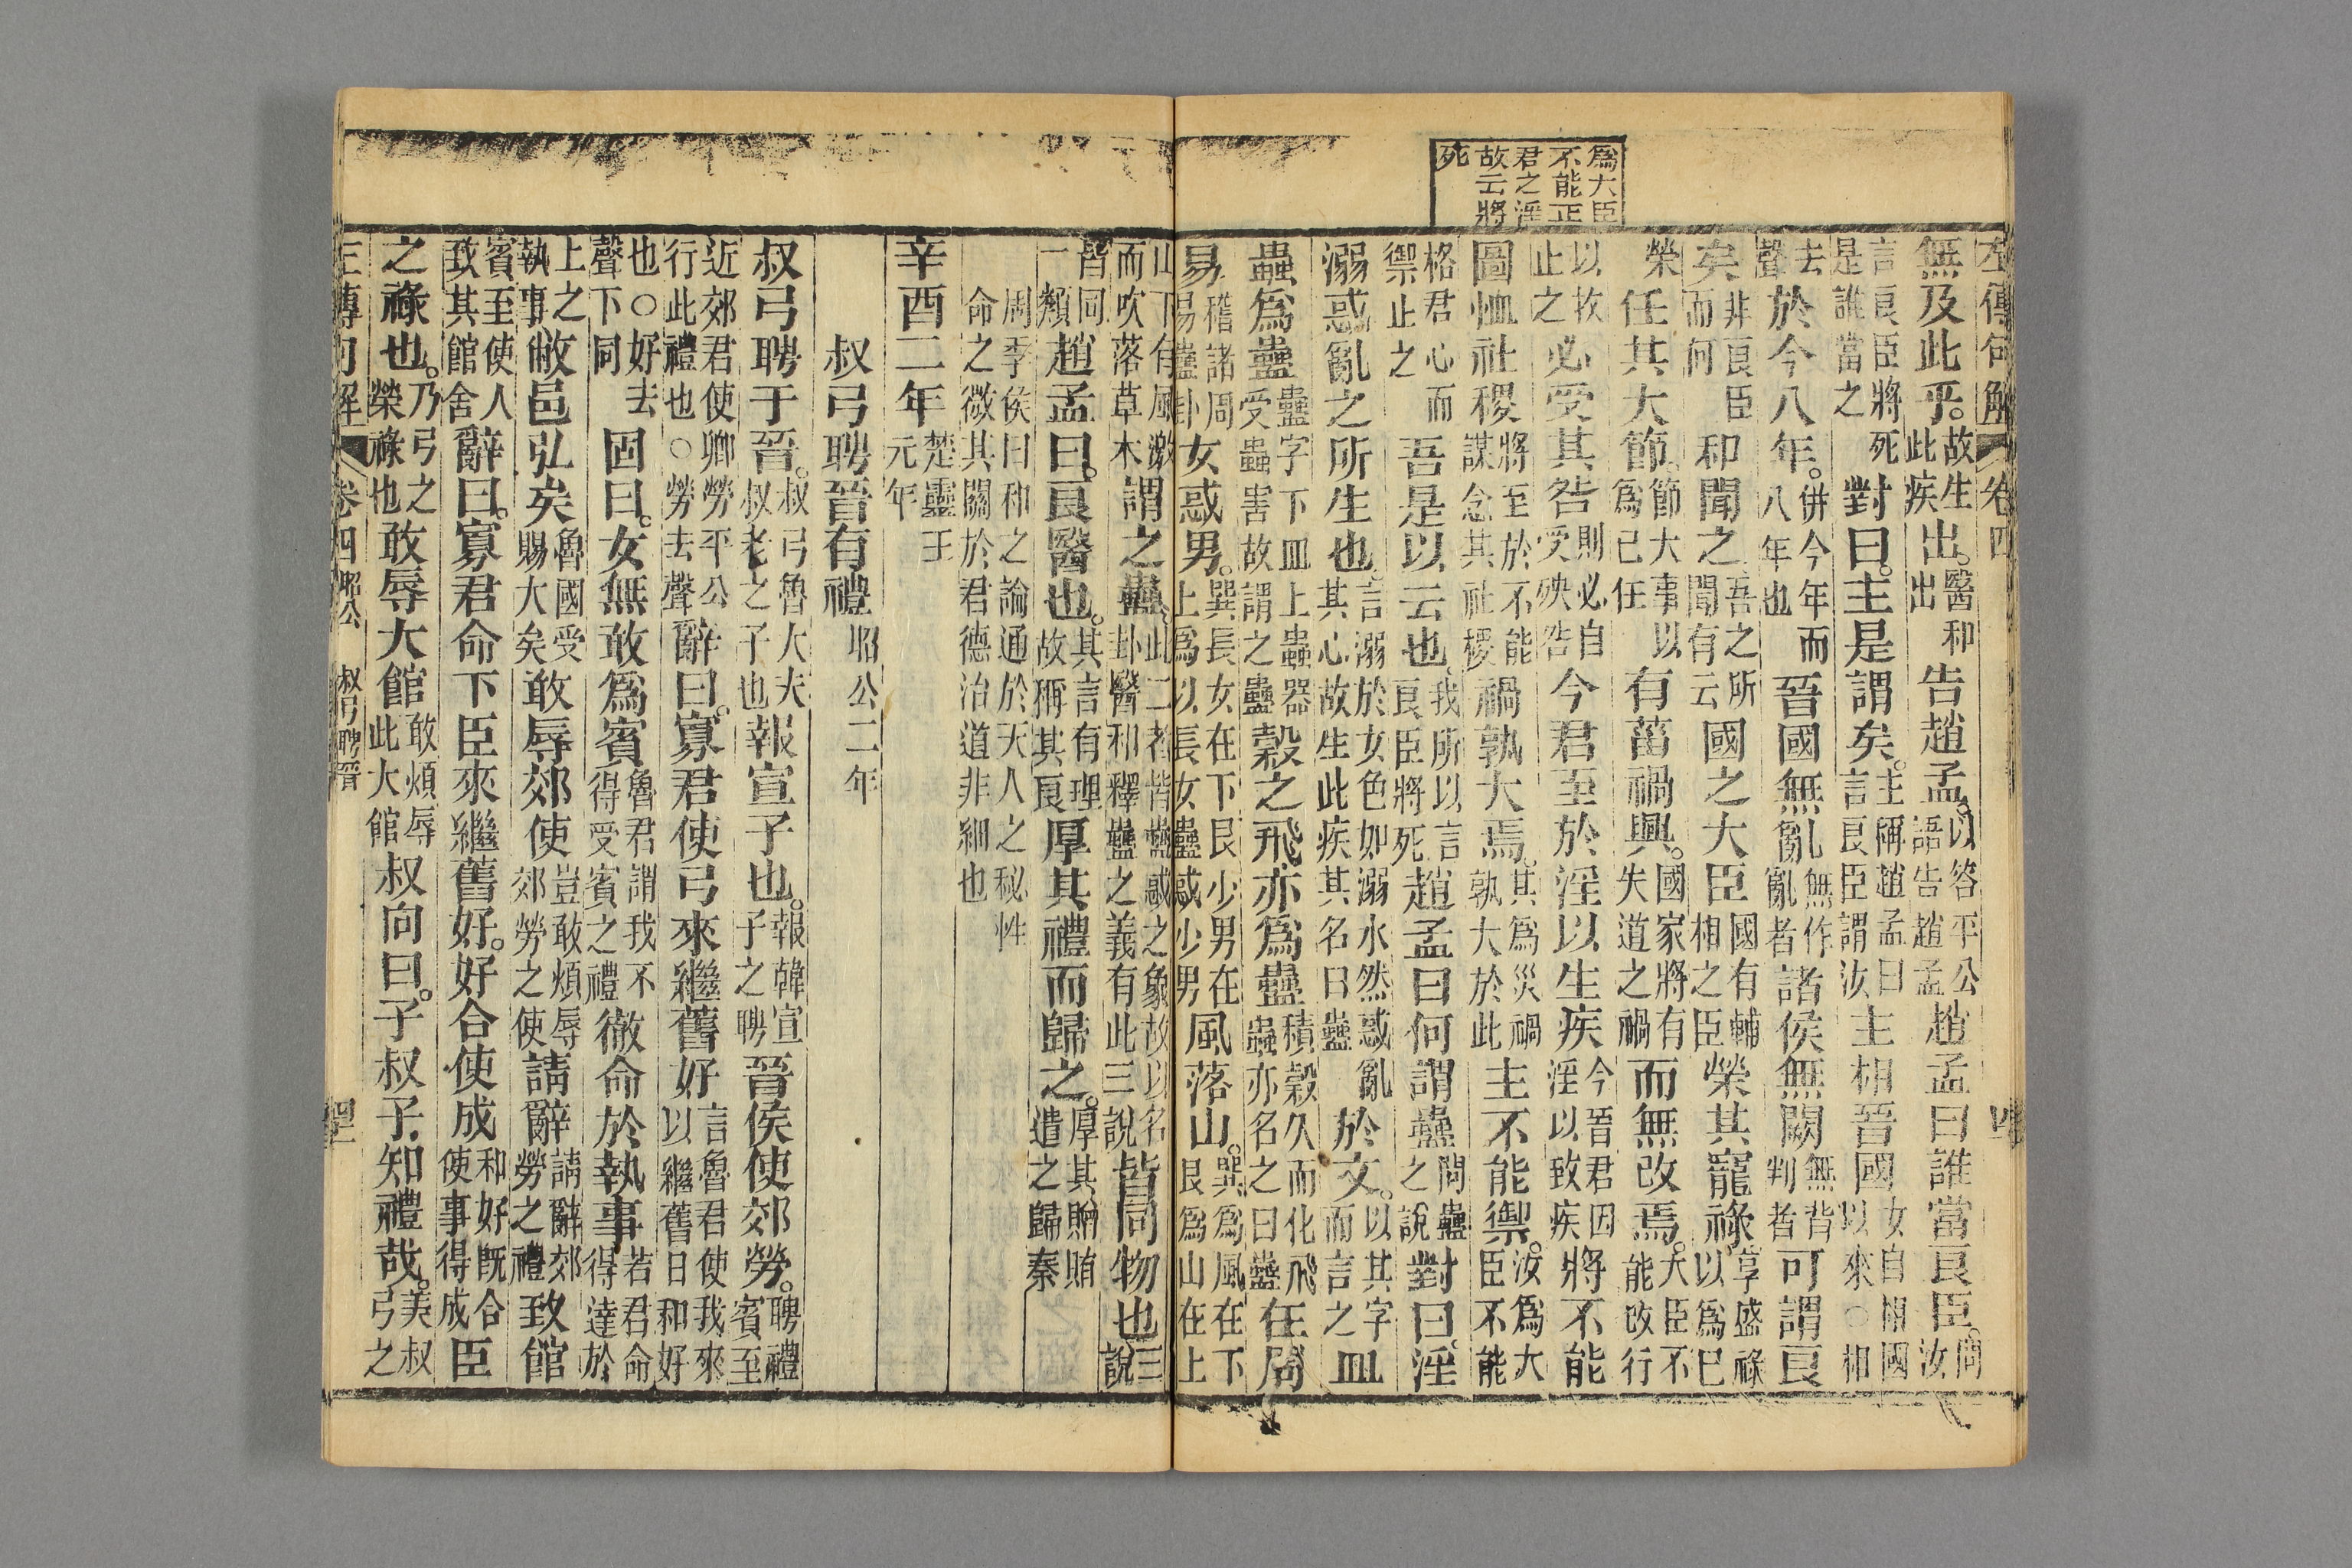 爲大臣
不能正
君之淫
故云將
死
左傳句解 卷四
無及此乎。故生此疾出。醫和出告趙孟。以答平公語告趙孟趙孟曰誰當良臣。問汝
言良臣將死是誰當之對曰。主是謂矣。主稱趙孟曰言良臣謂汝主相晉國女自相國以來○相
去聲於今八年。併今年而八年也晉國無亂無作亂者諸侯無闕無背判者可謂良
矣非良臣而何和聞之吾之所聞有云國之大臣國有輔相之臣榮其寵祿享盛祿以爲已
榮任其大節。節大事以爲已任有菑禍興。國家將有失道之禍而無改焉。大臣不能改行
以救止之必受其咎則必自受殃咎今君至於淫以生疾今晉君因淫以致疾將不能
圖恤社稷將至於不能謀念其社稷禍孰大焉。其爲災禍孰大於此主不能禦。汝爲大臣不能
格君心而禦止之吾是以云也。我所以言良臣將死趙孟曰何謂蠱問蠱之說對曰。淫
溺惑亂之所生也。言溺於女色如溺水然惑亂其心故生此疾其名曰蠱於文。以其字而言之皿
蟲爲蠱蠱字下皿上蟲器受蟲害故謂之蠱穀之飛亦爲蠱積穀久而化飛蟲亦名之曰蠱在周
易稽諸周易蠱卦女惑男。巽長女在下艮少男在上爲以長女蠱惑少男風落山。巽爲風在下艮爲山在上
山下有風激而吹落草木謂之蠱。此二者皆蠱惑之象故以名卦醫和釋蠱之義有此三說皆同物也三說
皆同一類趙孟曰。良醫也。其言有理故稱其良厚其禮而歸之。厚其贈賄遣之歸秦
周季侯曰和之論通於天人之秘性命之微其關於君德治道非細也
辛酉二年楚靈王元年
叔弓聘晉有禮昭公二年
叔弓聘于晉。叔弓魯大夫叔老之子也報宣子也。報韓宣子之聘晉侯使郊勞。聘禮賓至
近郊君使卿勞平公行此禮也○勞去聲辭曰。寡君使弓來繼舊好言魯君使我來以繼舊日和好
也○好去聲下同固曰。女無敢爲賓魯君謂我不得受賓之禮徹命於執事若君命得達於
上之執事敝邑弘矣魯國受賜大矣敢辱郊使豈敢煩辱郊勞之使請辭請辭郊勞之禮致館
賓至使人致其館舍辭曰。寡君命下臣來繼舊好。好合使成和好旣合使事得成臣
之祿也。乃弓之榮祿也敢辱大館敢煩辱此大館叔向曰。子叔子知禮哉。美叔弓之
左傳句解 卷四 昭公 叔弓聘晉